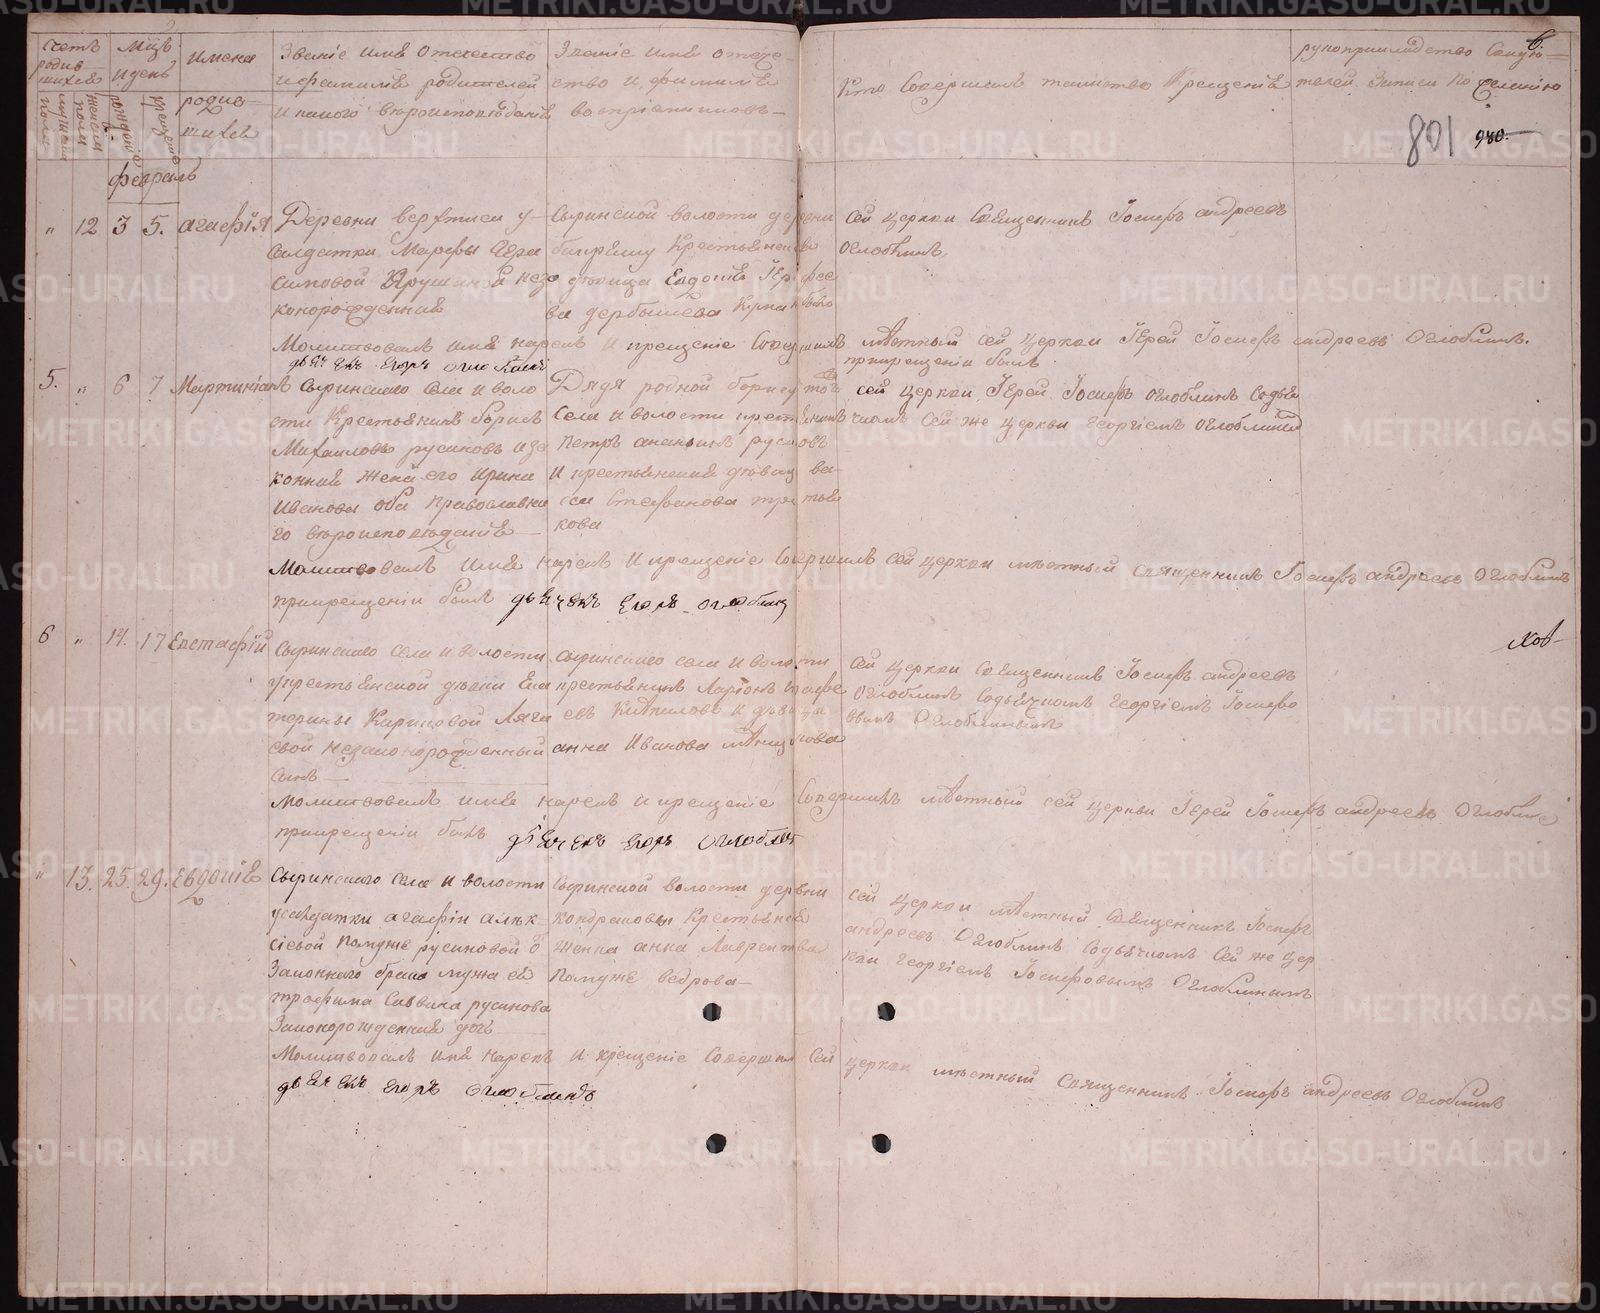 счетъ родив шихся
мужеска пола
женска пола
Мцъ и день
рожденія
крещенія
имена родив шихся
Званіе имя отечество
и фамилія родителей
и какого вѣроисповѣданія
Званіе имя отече
ство и фамилія
воспріемниковъ
Кто Совершалъ таинство Крещенія
рукоприкладство Свидѣ
телей Записи по желанію
6.
801 980.
февраль
" 12 3 5. агафія
Деревни у
Салдатки Марфы Гера
симовой незо
конорожденная
Сыринской волости деревни
Крестьянская
дѣвица Евдокія
ва
Сей Церкви Священникъ Іосифъ андреевъ
Оглоблинъ
Молитвовалъ имя нарекъ и крещеніе Совершилъ мѣстный сей церкви Іерей Іосифъ андреевъ Оглоблинъ.
прикрещеніи былъ
дьячекъ Егоръ Оглоблинъ
5. " 6 7 Мартиніанъ
Сыринского Села и воло
сти Крестьянинъ борисъ
Михаиловъ русиновъ и за
конная жена его Ирина
Иванова оба Православна
го вѣроисповѣданія
Дядя родной
Села и волости крестьянинъ
Петръ русиновъ
и крестьянская дѣвица ва
са Стефанова треть
кова
сей Церкви Іерей Іосифъ Оглоблинъ Содья
чкомъ Сей же церкви Георгіемъ Оглоблинымъ
Молитвовалъ имя нарекъ и крещеніе Совершилъ сей церкви мѣстный священникъ Іосифъ андреевъ Оглоблинъ
прикрещеніи былъ дьячекъ Егоръ Оглоблинъ
6 " 14. 17 Евстафій
Сыринского Села и волости
у крестьянской дѣвки Ека
терины Кириловой
евой незаконорожденный
сынъ
Сыринского села и волости
крестьянинъ Ларіонъ
евъ и дѣвица
анна Иванова
Сей Церкви Священникъ Іосифъ андреевъ
Оглоблинъ Содьячкомъ Георгіемъ Іосифо
вымъ Оглоблинымъ
Молитвовалъ имя нарекъ и крещеніе Совершилъ мѣстный сей церкви Іерей Іосифъ андреевъ Оглоблинъ
прикрещеніи былъ дьячекъ Егоръ Оглоблинъ
" 13. 25. 29. Евдокія
Сыринского Села и волости
у салдатки агафіи алек
сіевой Помужѣ русиновой о
Законного брака мужа ея
трофима Саввина русинова
Законорожденная дочь
Сыринской волости деревни
Кондраловы Крестьянска
женка анна Лаврентьева
Помужѣ ведрова
Сей Церкви мѣстный Священникъ Іосифъ
андреевъ Оглоблинъ Содьячкомъ Сей же Цер
кви Георгіемъ Іосифовымъ Оглоблинымъ
Молитвовалъ имя нарекъ и крещеніе Совершилъ Сей церкви мѣстный Священникъ Іосифъ андреевъ Оглоблинъ
дьячекъ Егоръ Оглоблинъ
METRIKI.GASO-URAL.RU